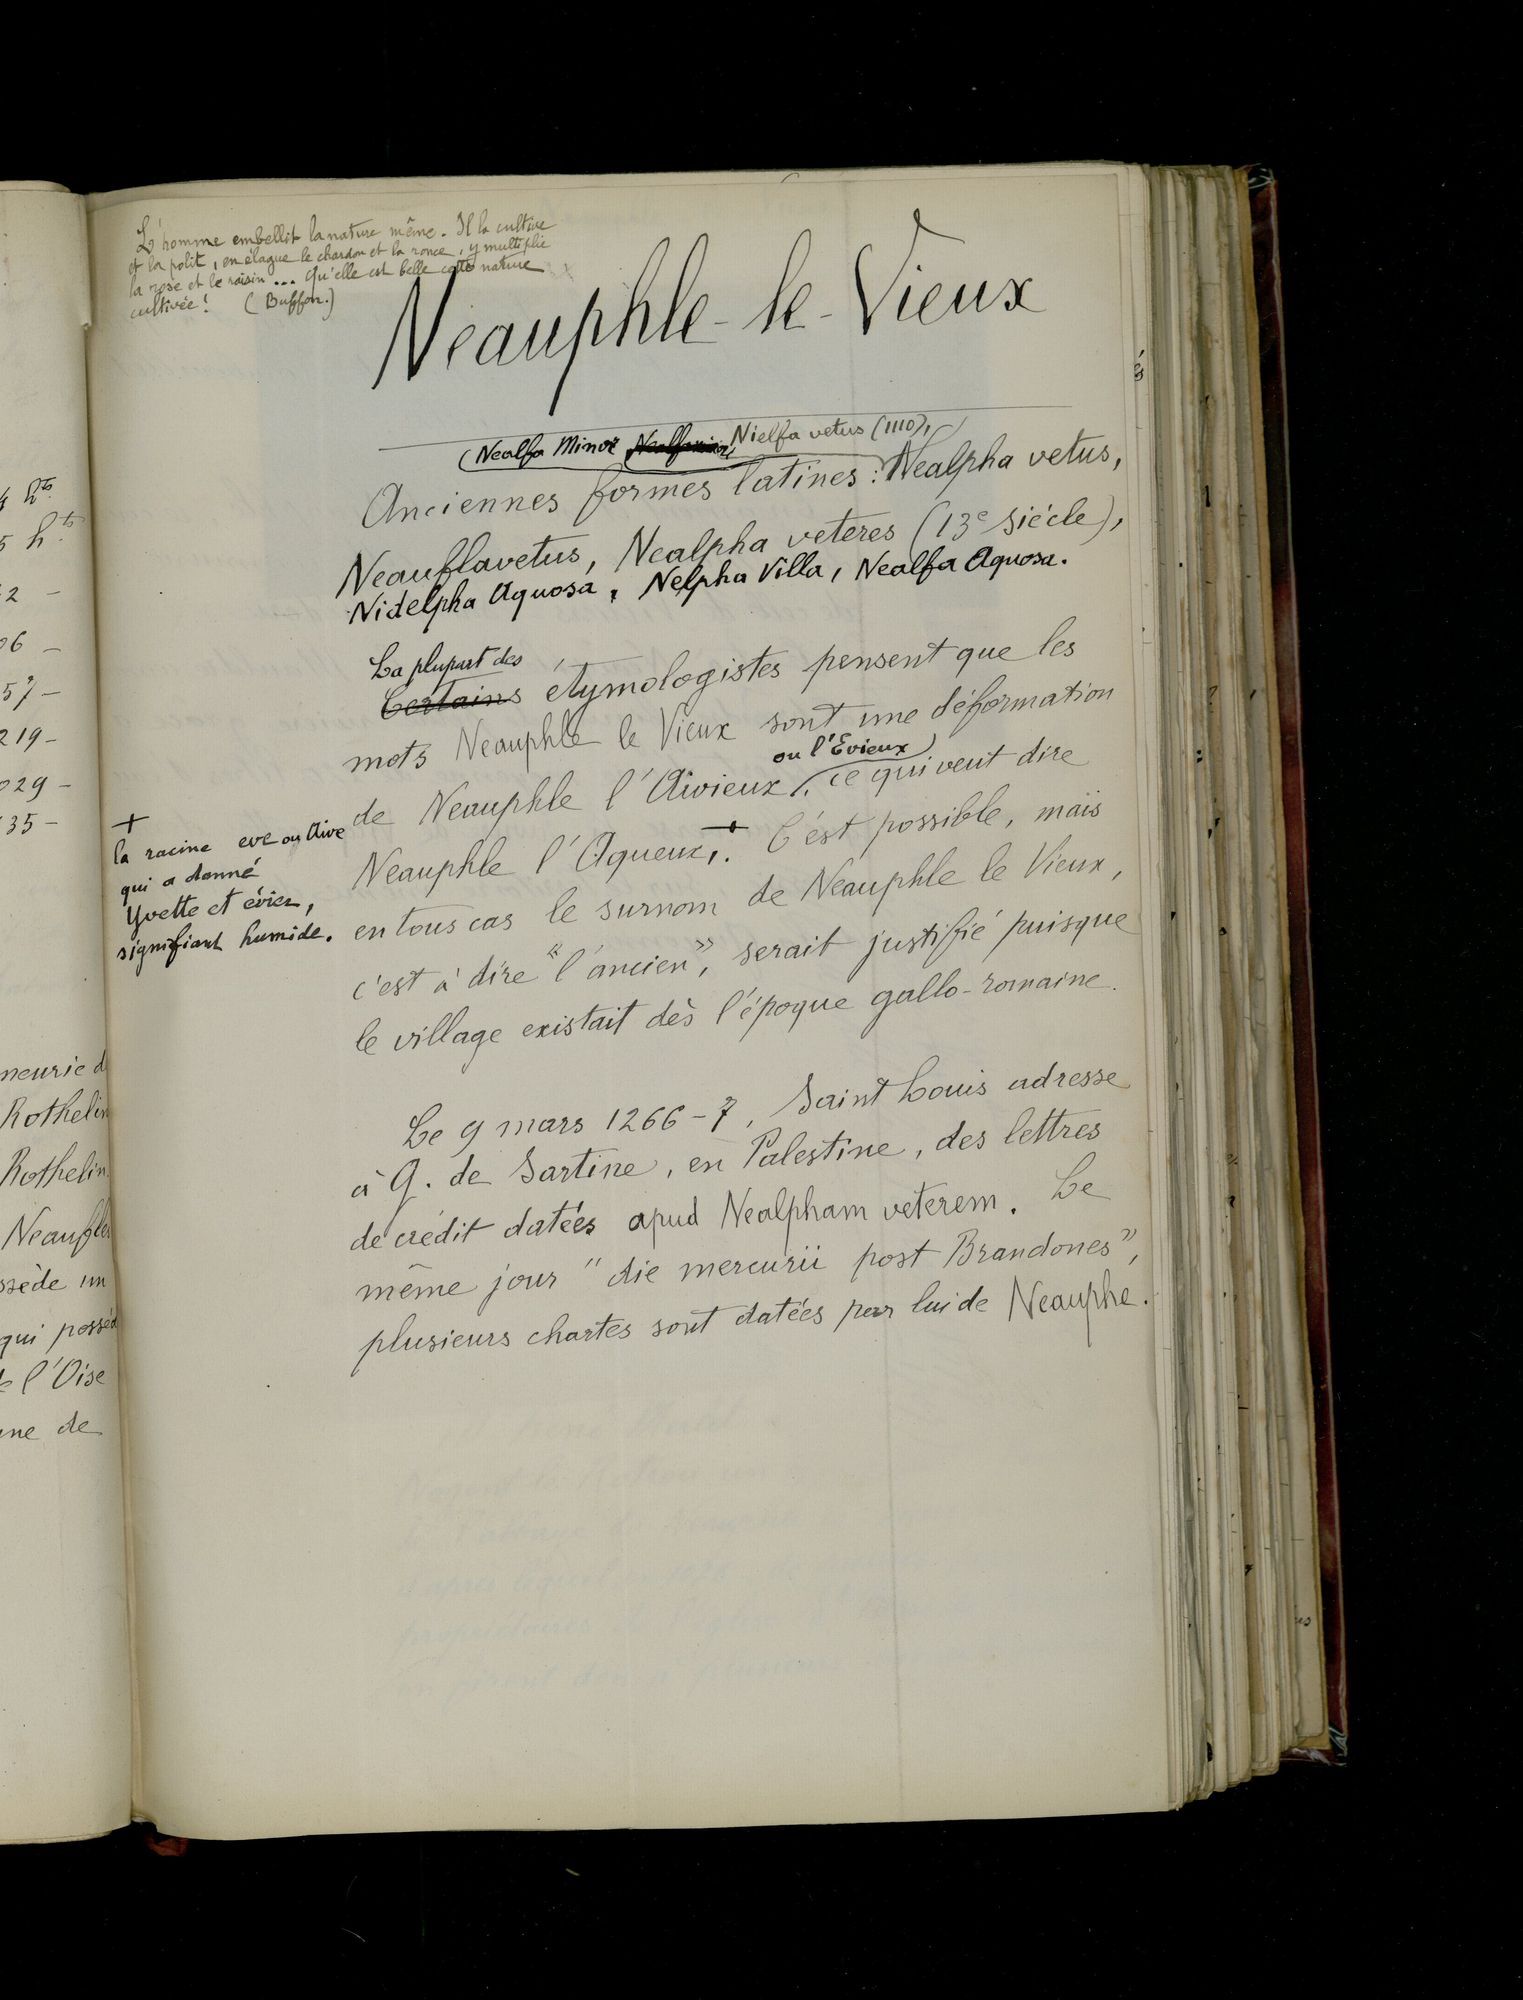 L'homme embellit la nature même. Il la cultive
et la polit, en élague le chardon et la ronce, y multiplie
la rose et le raisin... Qu'elle est belle cette nature
cultivée! (Buffon.)
Neauphle-le-Vieux
(Nealfa Minor Nielfa vetus (1110),)
Anciennes formes latines: Nealpha vetus,
Neauflavetus, Nealpha veteres (13e siècle),
Nidelpha Aquosa, Nelpha Villa, Nealfa Aquosa.
La plupart des
Certains étymologistes pensent que les
mots Neauphle le Vieux sont une déformation
ou l'Evieux)
de Neauphle l'Aivieux, ce qui veut dire
Neauphle l'Aqueux,+. C'est possible, mais
en tous cas le surnom de Neauphle le Vieux,
c'est à dire "l'ancien", serait justifié puisque
le village existait dès l'époque gallo-romaine.
+
la racine eve ou Aive
qui a donné
Yvette et évier,
signifiant humide.
Le 9 mars 1266-7, Saint Louis adresse
à G. de Sartine, en Palestine, des lettres
de crédit datées apud Nealpham veterem. Le
même jour "die mercurii post Brandones",
plusieurs chartes sont datées par lui de Neauphe.
4 hts
5 hts
2 -
06 -
57 -
219 -
029 -
35 -
neurie d
Rothelin
Rothelin
Neaufle
ssède un
qui posséd
de l'Oise
une de